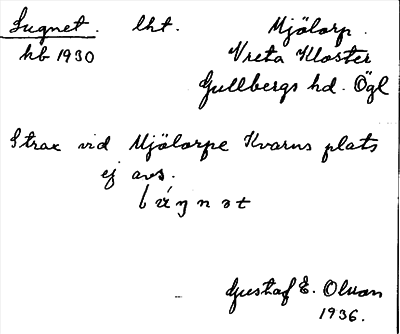 Lugnet. lht. Mjölorp.
hb 1930 Vreta Kloster
Gullbergs hd. Ögl
Strax vid Mjölorps Kvarns plats
ej avs.
Gustaf E. Olson
1936.